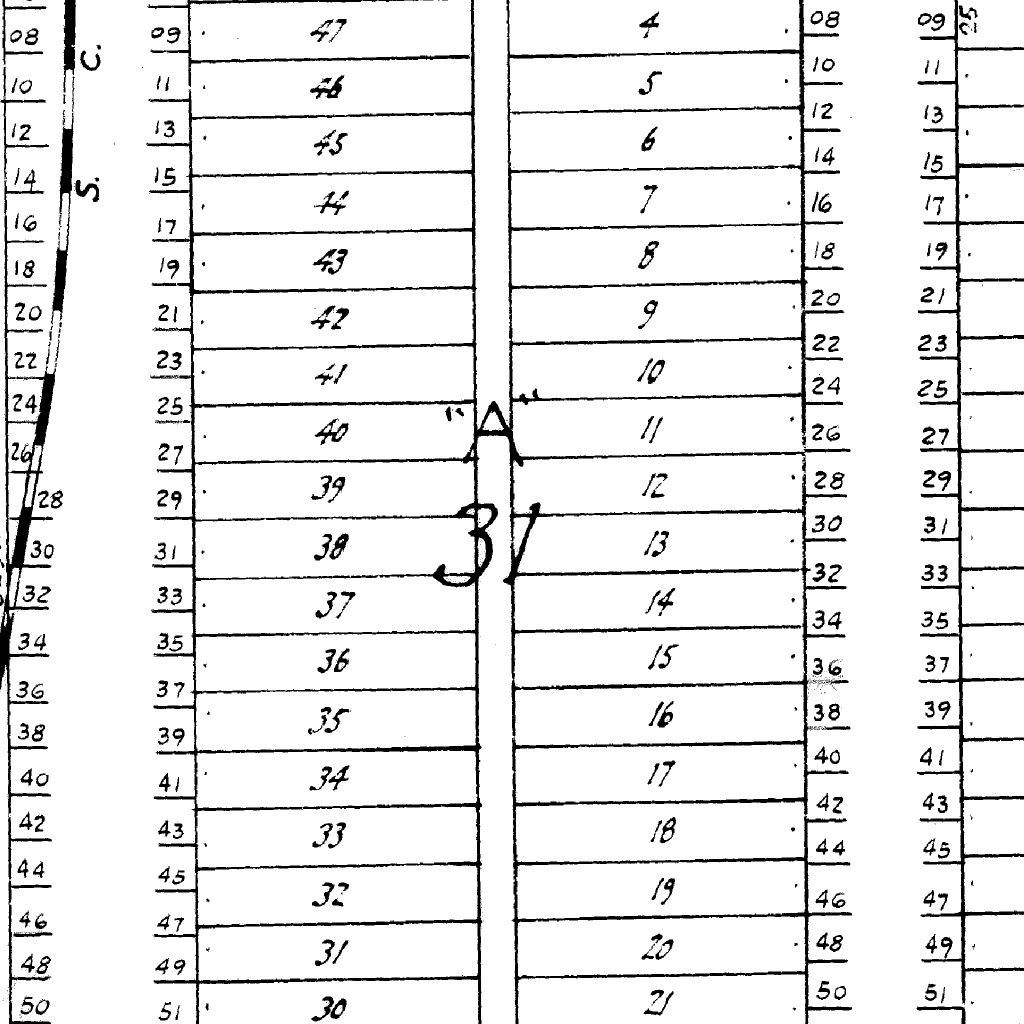 08 09 47 4 08 09 25
C.
10 11 46 5 10 11
12 13 45 6 12 13
14 15 14 15
S.
16 17 44 7 16 17
18 19 43 8 18 19
20 21 42 9 20 21
22 23 41 10 22 23
24 25 24 25
"A"
26 27 40 11 26 27
28 29 39 12 28 29
31
30 31 38 13 30 31
32 33 37 14 32 33
34 35 34 35
36 37 36 15 36 37
38 39 35 16 38 39
40 41 34 17 40 41
42 43 33 18 42 43
44 45 44 45
46 47 32 19 46 47
48 49 31 20 48 49
50 51 30 21 50 51